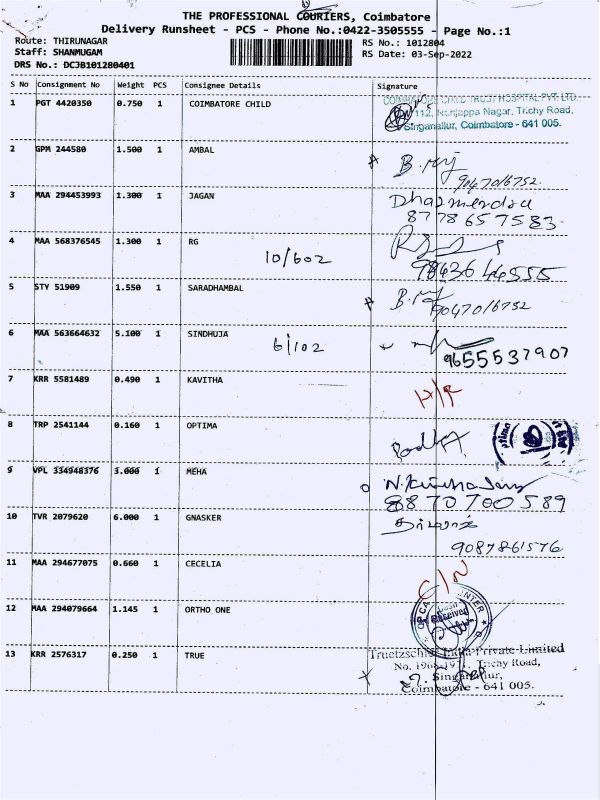 THE PROFESSIONAL COURIERS, Coimbatore
Delivery Runsheet - PCS - Phone No.:0422-3505555 - Page No.:1
Route: THIRUNAGAR
RS No.: 1012804
Staff: SHANMUGAM
RS Date: 03-Sep-2022
DRS No.: DCJB101280401
S No Consignment No Weight PCS Consignee Details Signature
1 PGT 4420350 0.750 1 COIMBATORE CHILD
COIMBATORE CHILD TRUST HOSPITAL PVT. LTD.
112, Nanjappa Nagar, Trichy Road,
Singanallur, Coimbatore - 641 005.
2 GPM 244580 1.500 1 AMBAL
9047016752
3 MAA 294453993 1.300 1 JAGAN
Dharmendra
8778657583
4 MAA 568376545 1.300 1 RG
10/602
9843644555
5 STY 51909 1.550 1 SARADHAMBAL
9047016752
6 MAA 563664632 5.100 1 SINDHUJA
6/102
9655537907
7 KRR 5581489 0.490 1 KAVITHA
8 TRP 2541144 0.160 1 OPTIMA
9 VPL 334948376 3.000 1 MEHA
8870700589
10 TVR 2079620 6.000 1 GNASKER
9087861576
11 MAA 294677075 0.660 1 CECELIA
C/N
12 MAA 294079664 1.145 1 ORTHO ONE
Received
13 KRR 2576317 0.250 1 TRUE
Truetzschler India Private Limited
Trichy Road,
Singanallur,
Coimbatore - 641 005.